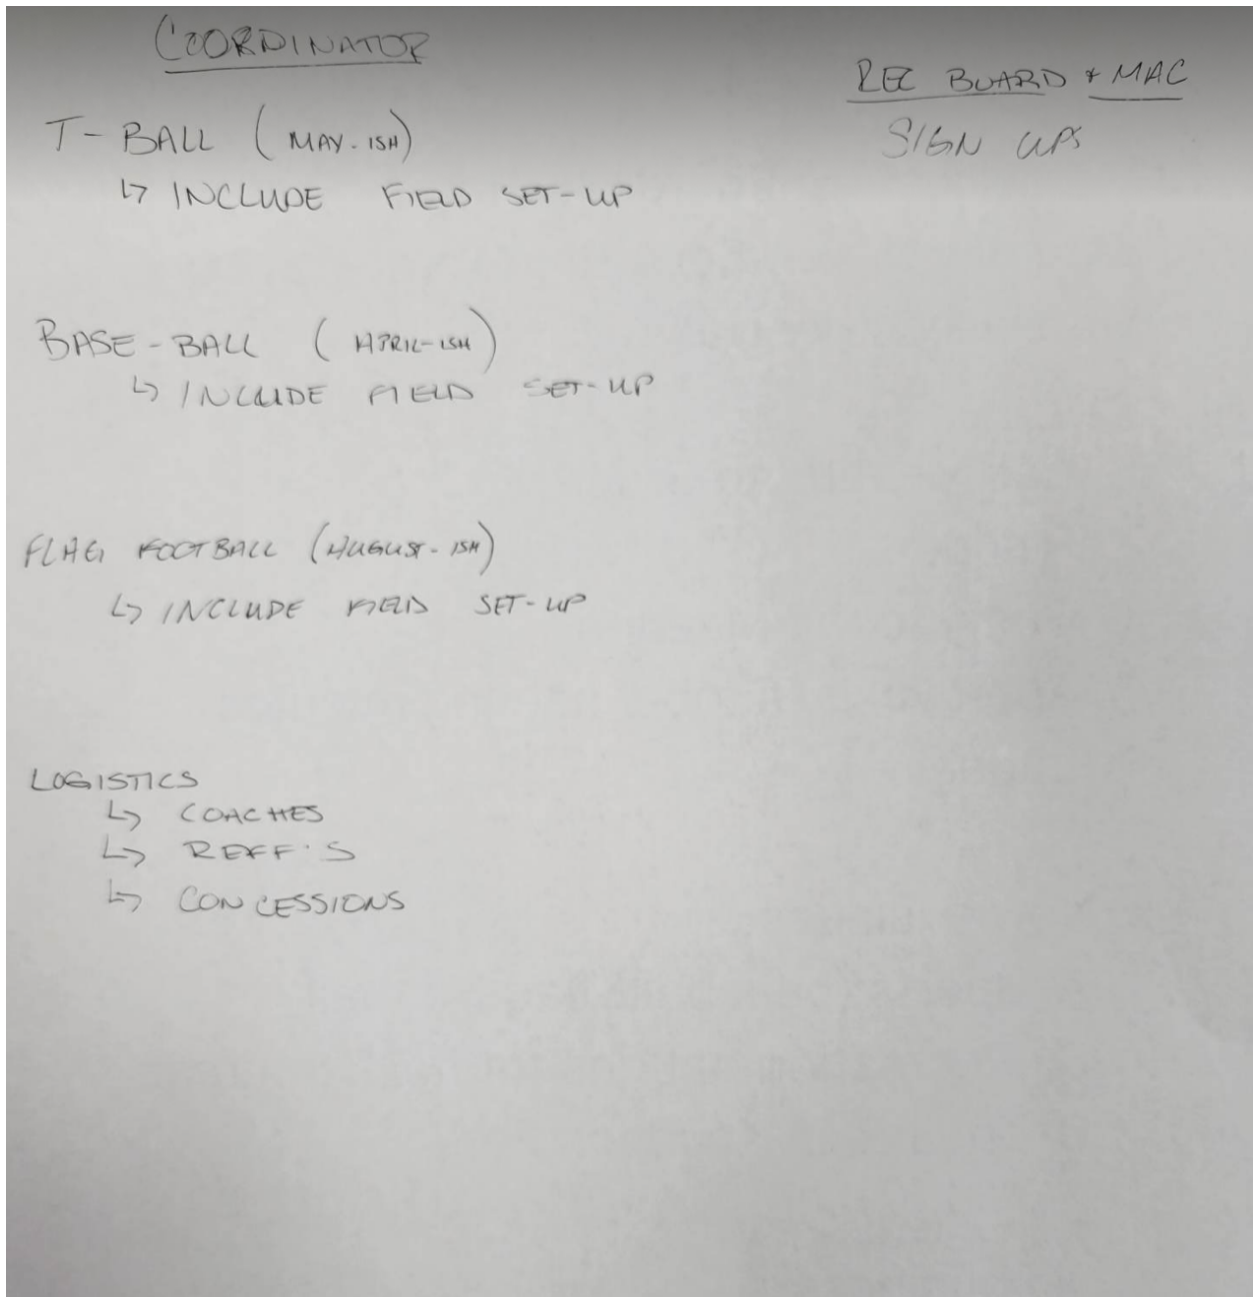 COORDINATOR
T-BALL (MAY-ISH)
↳ INCLUDE FIELD SET-UP
BASE-BALL (APRIL-ISH)
↳ INCLUDE FIELD SET-UP
FLAG FOOTBALL (AUGUST-ISH)
↳ INCLUDE FIELD SET-UP
LOGISTICS
↳ COACHES
↳ REFF'S
↳ CONCESSIONS
REC BOARD + MAC
SIGN UPS